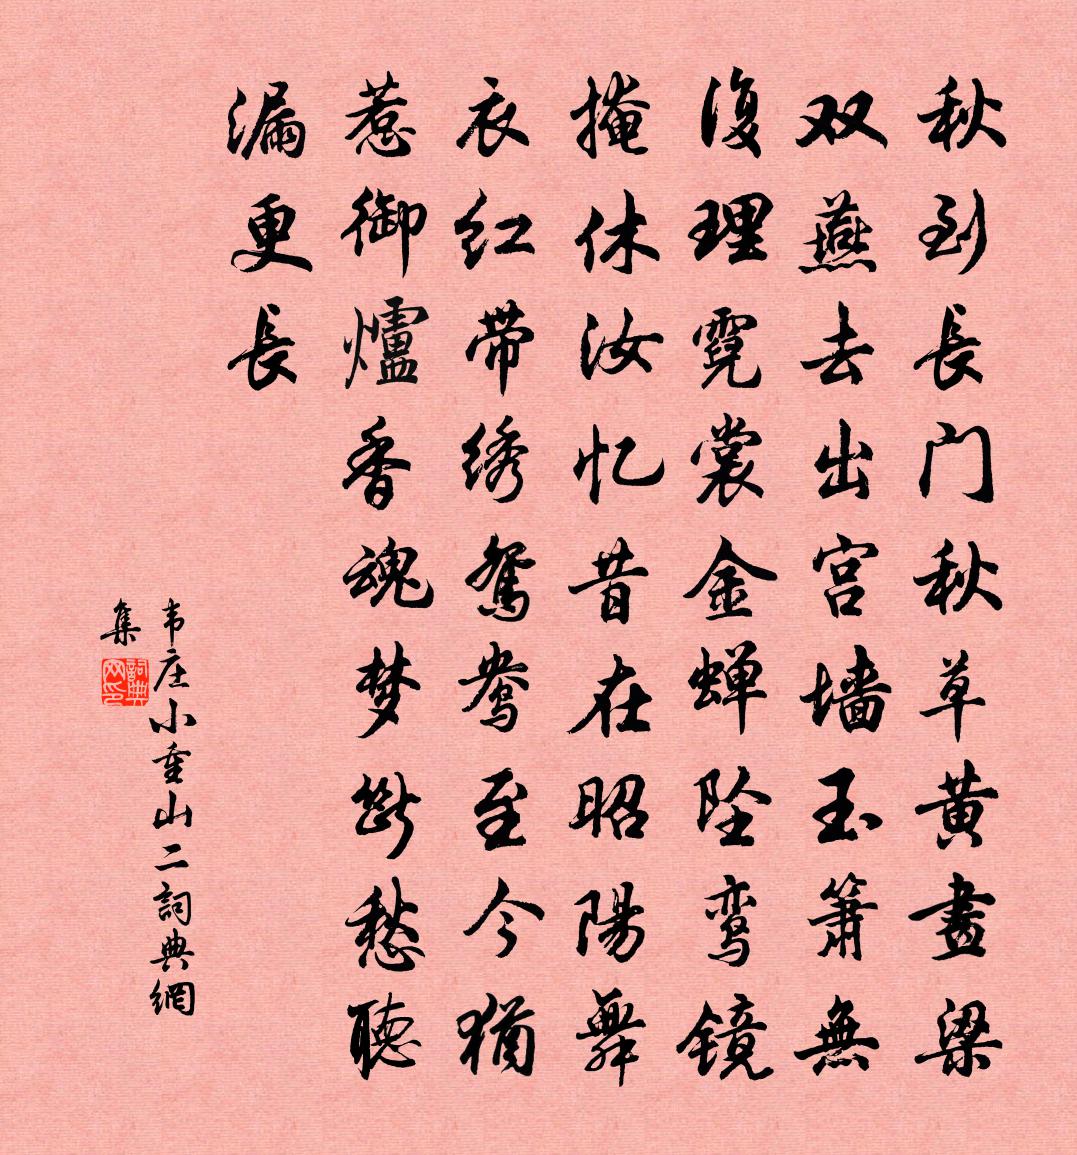 秋到長门秋草黄畫梁
双燕去出宫墙玉箫無
復理霓裳金蝉坠鸾镜
掩休汝忆昔在昭陽舞
衣红带绣鸳鸯至今犹
惹御爐香魂梦断愁聽
漏更長
韦庄小重山二詞典網
集
詞典
网印